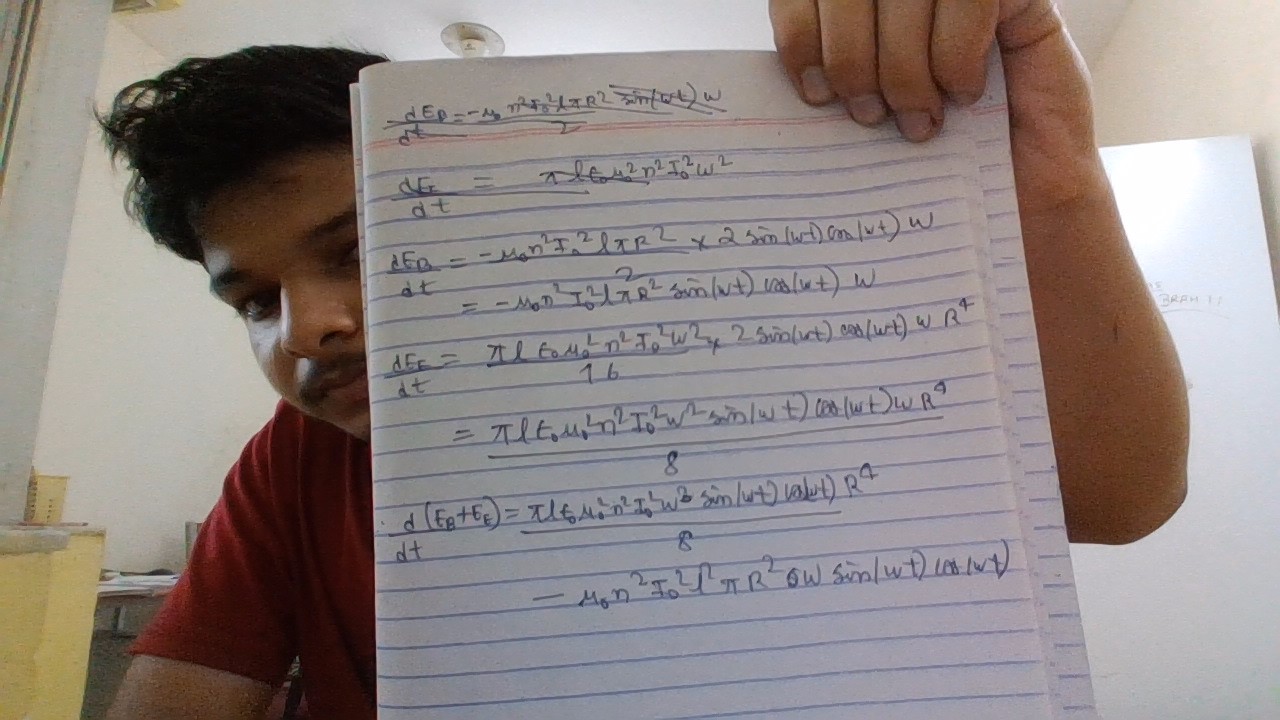 dE_B/dt = -μ₀ n²I₀²lπR² sin(wt) w / 2
dE_E/dt = πlϵ₀μ₀²n²I₀²w²
dE_B/dt = -μ₀n²I₀²lπR²/2 × 2 sin(wt) cos(wt) w
= -μ₀n²I₀²lπR² sin(wt) cos(wt) w
dE_E/dt = πlϵ₀μ₀²n²I₀²w²/16 × 2 sin(wt) cos(wt) w R⁴
= πlϵ₀μ₀²n²I₀²w² sin(wt) cos(wt) w R⁴ / 8
d(E_B+E_E)/dt = πlϵ₀μ₀²n²I₀²w³ sin(wt) cos(wt) R⁴ / 8
- μ₀n²I₀²lπR² w sin(wt) cos(wt)